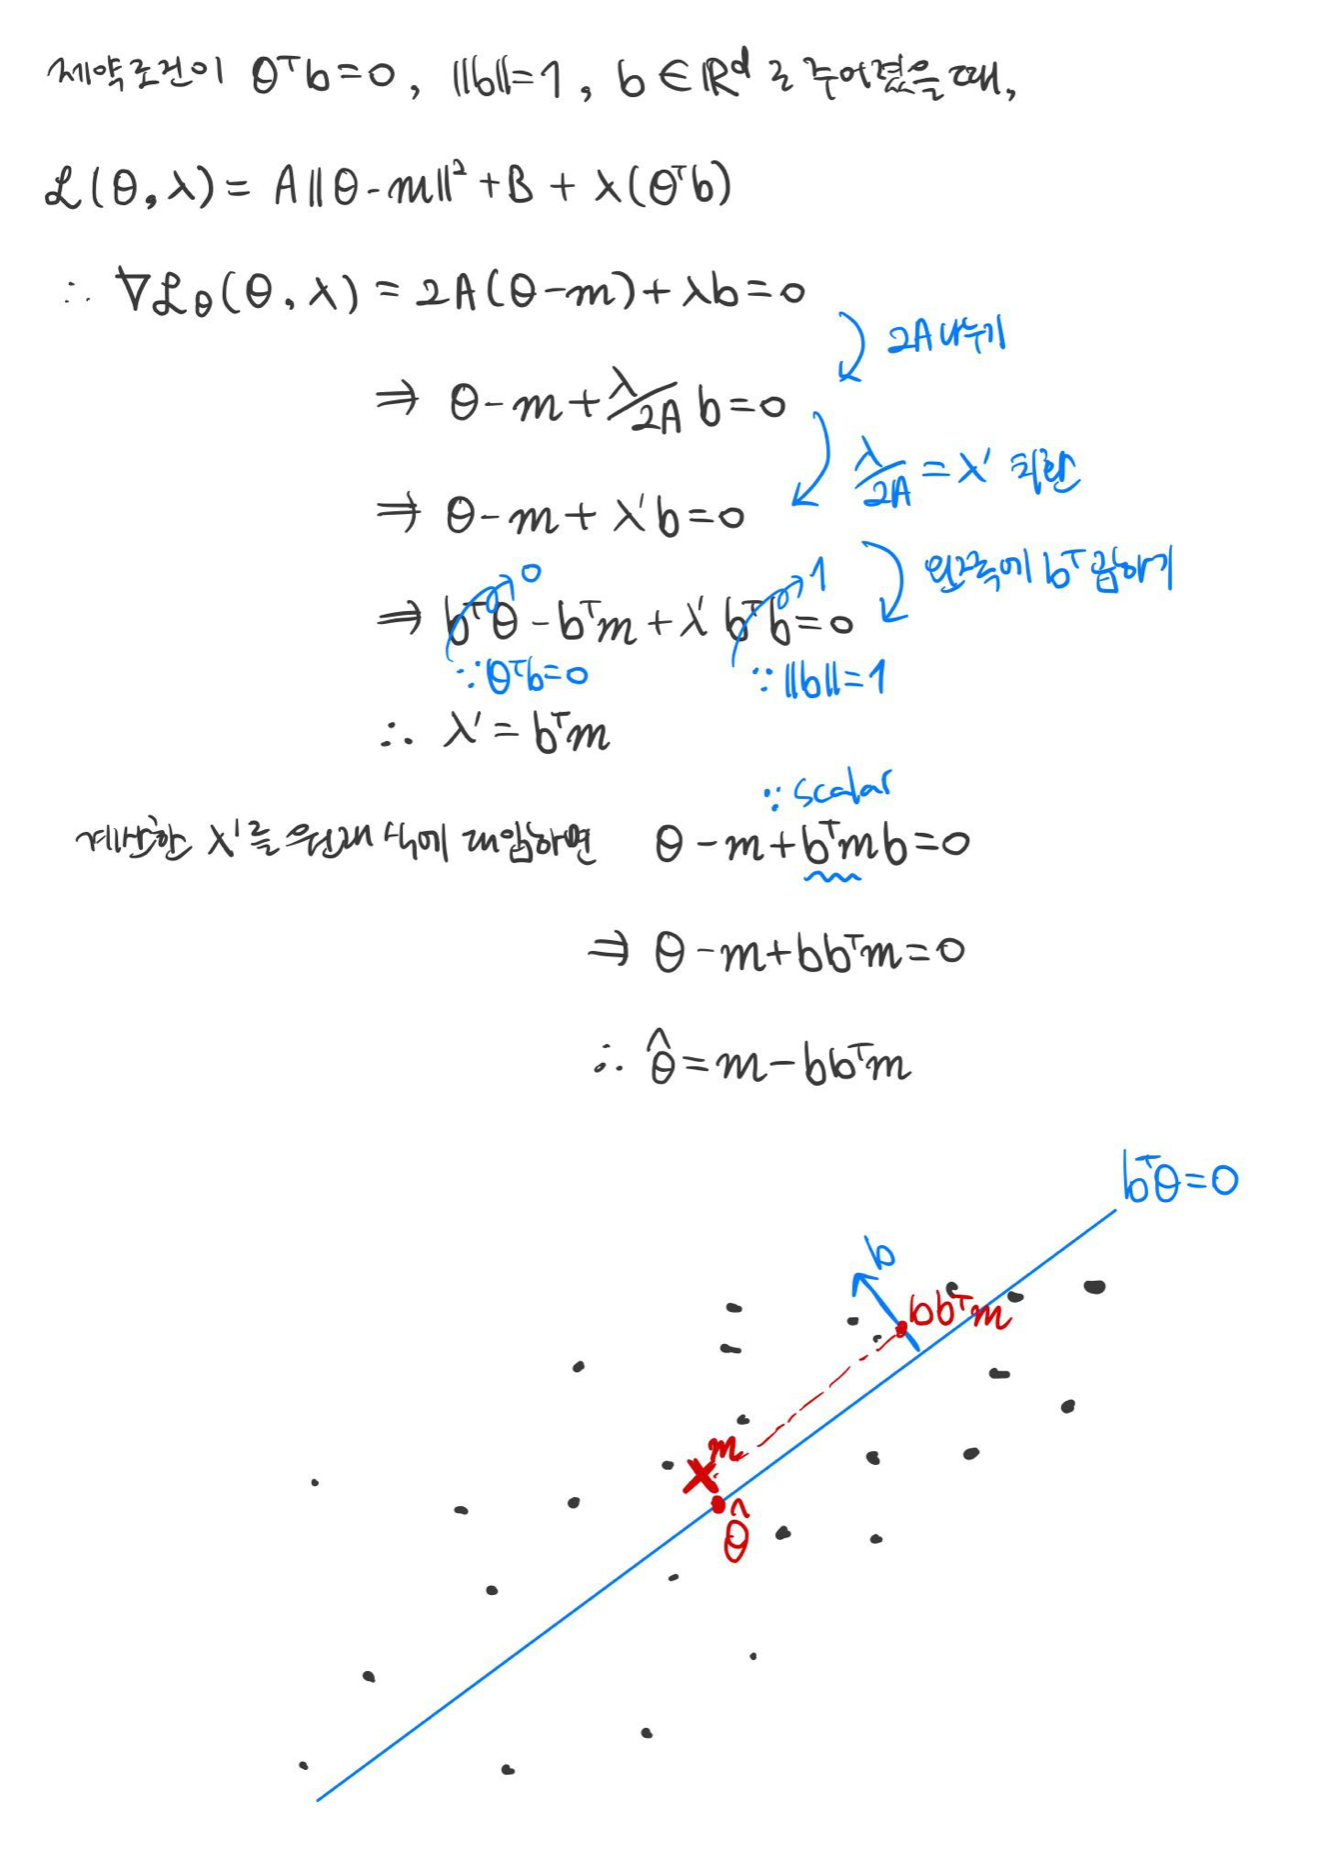 제약조건이 θᵀb=0, ||b||=1, b∈ℝᵈ로 주어졌을 때,
ℒ(θ,λ)= A||θ-m||²+B+λ(θᵀb)
∴ ∇ℒ_θ(θ,λ) = 2A(θ-m)+λb=0
2A 나누기
⇒ θ-m+λ/2A b=0
λ/2A=λ' 치환
⇒ θ-m+λ'b=0
왼쪽에 bᵀ곱하기
0 1
⇒ bᵀθ-bᵀm+λ'bᵀb=0
∵θᵀb=0 ∵||b||=1
∴ λ'=bᵀm
∵ scalar
계산한 λ'를 원래 식에 대입하면 θ-m+bᵀmb=0
⇒ θ-m+bbᵀm=0
∴ θ̂=m-bbᵀm
bᵀθ=0
b
bbᵀm
m
θ̂